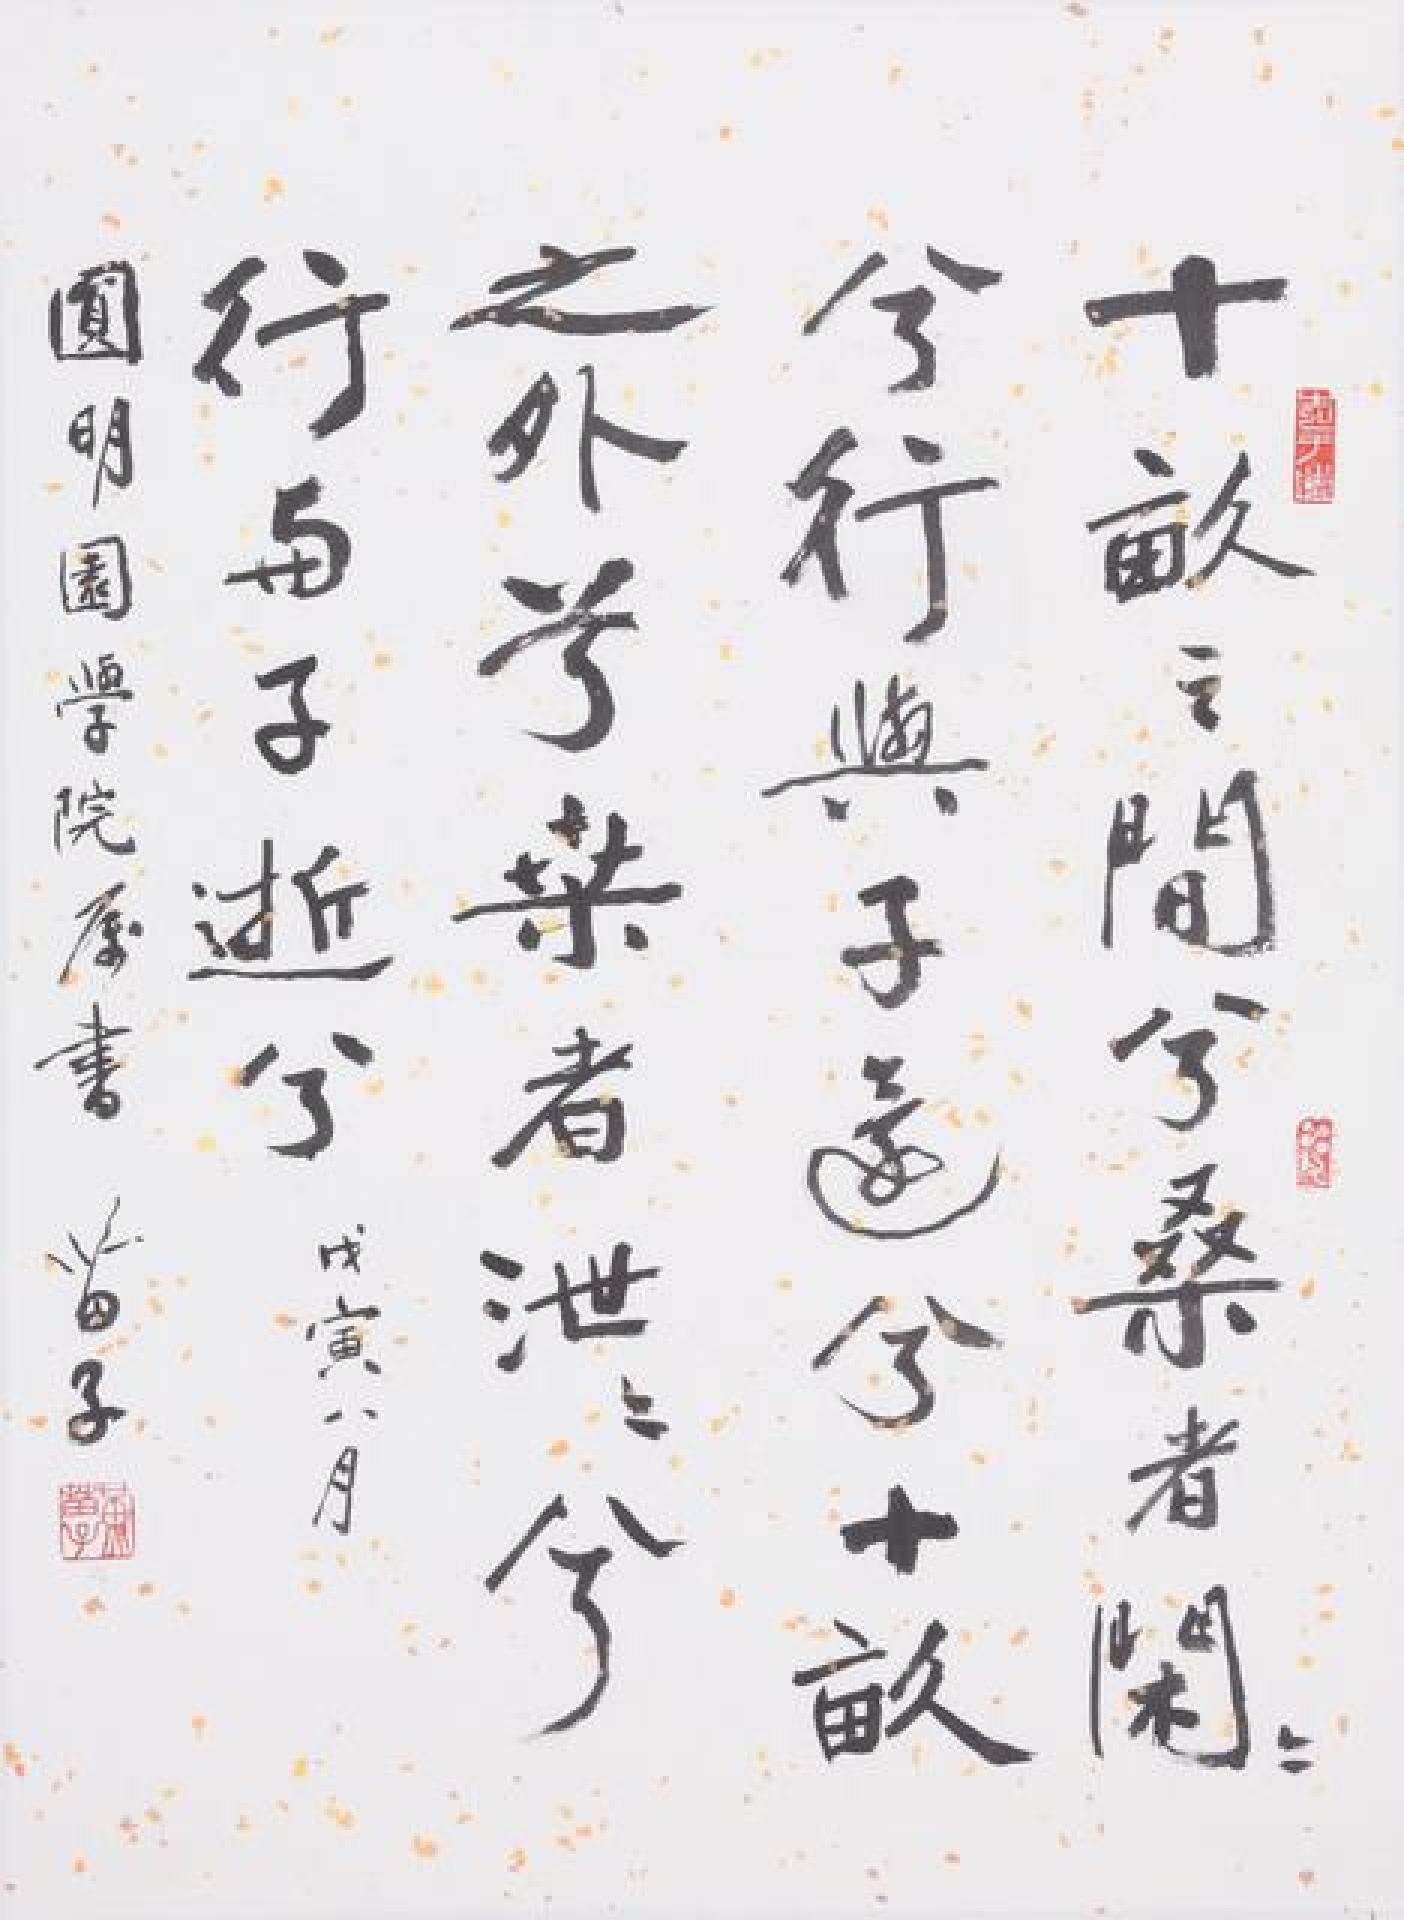 十畝之間兮桑者閑〻
兮行與子還兮十畝
之外兮桒者泄〻兮
行与子逝兮
戊寅八月
圓明園學院属書
苗子
黄苗子